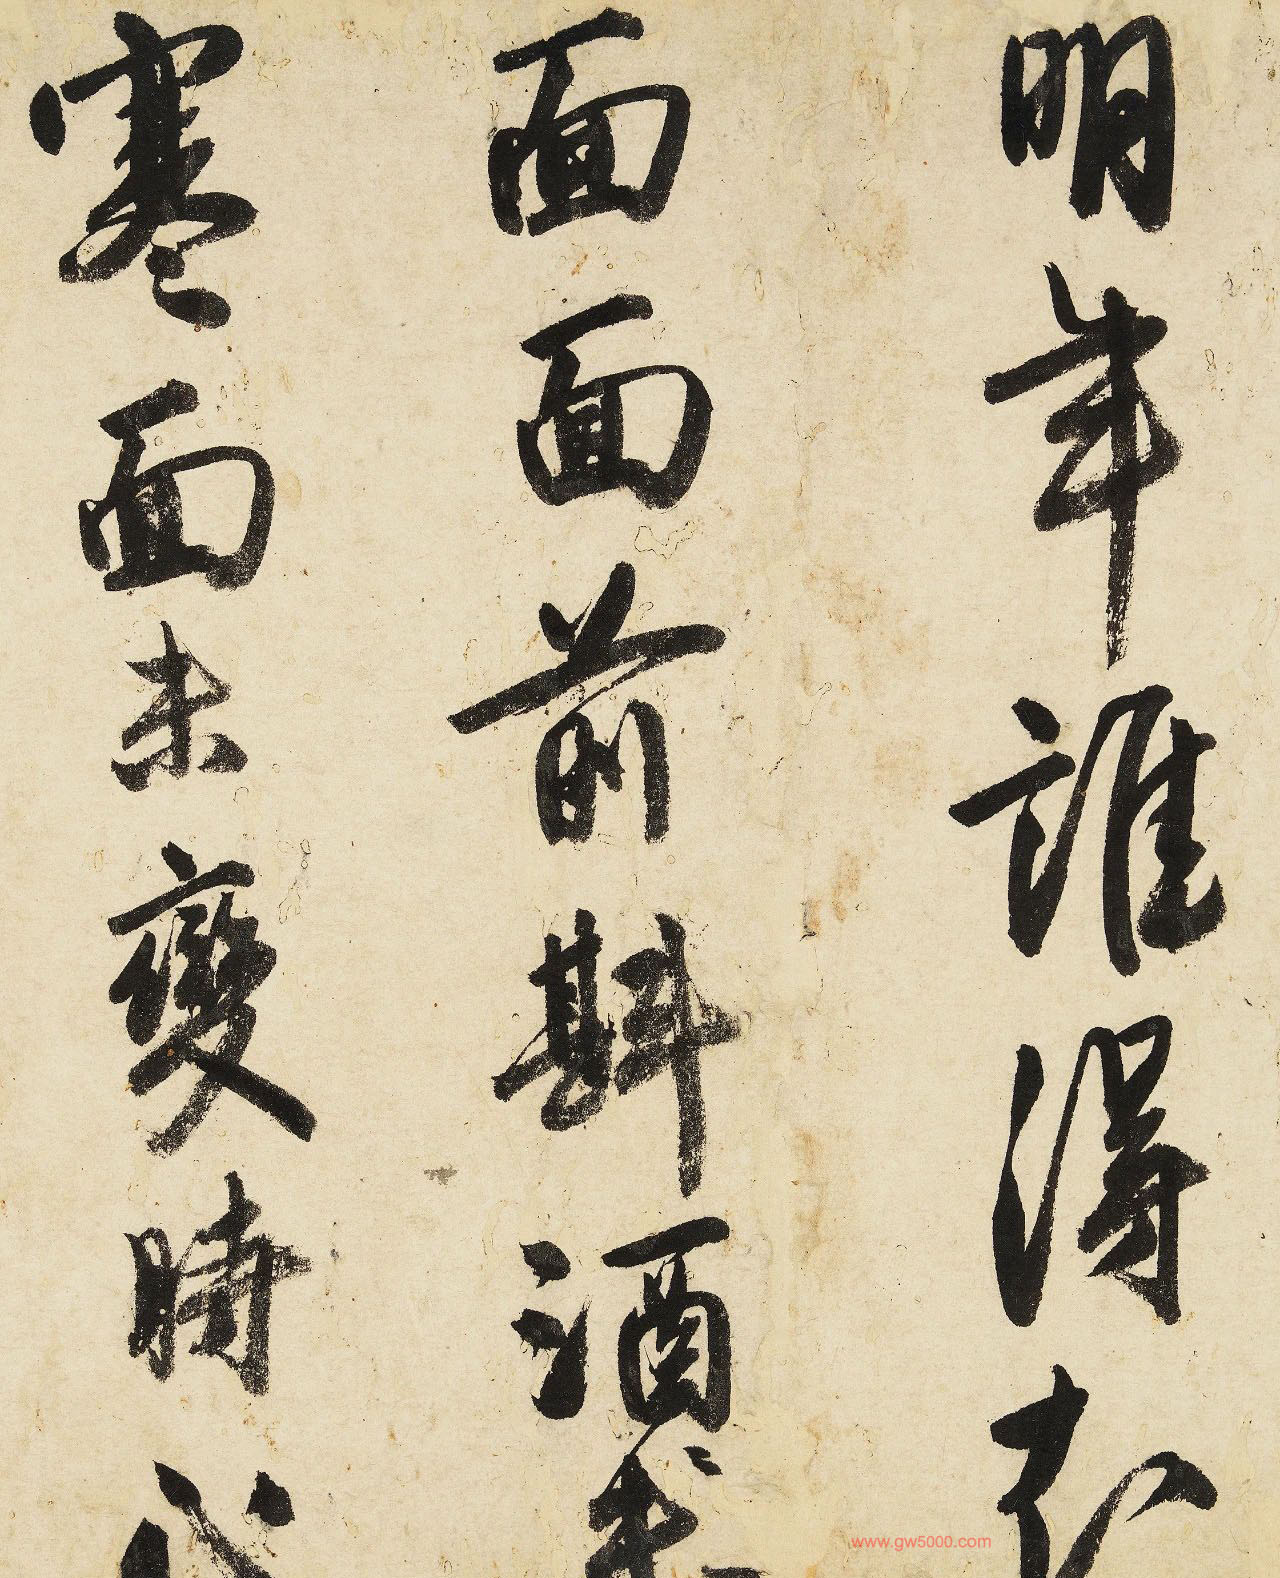 明年誰得
面面前斟酒〻未
寒面未變時心
www.gw5000.com